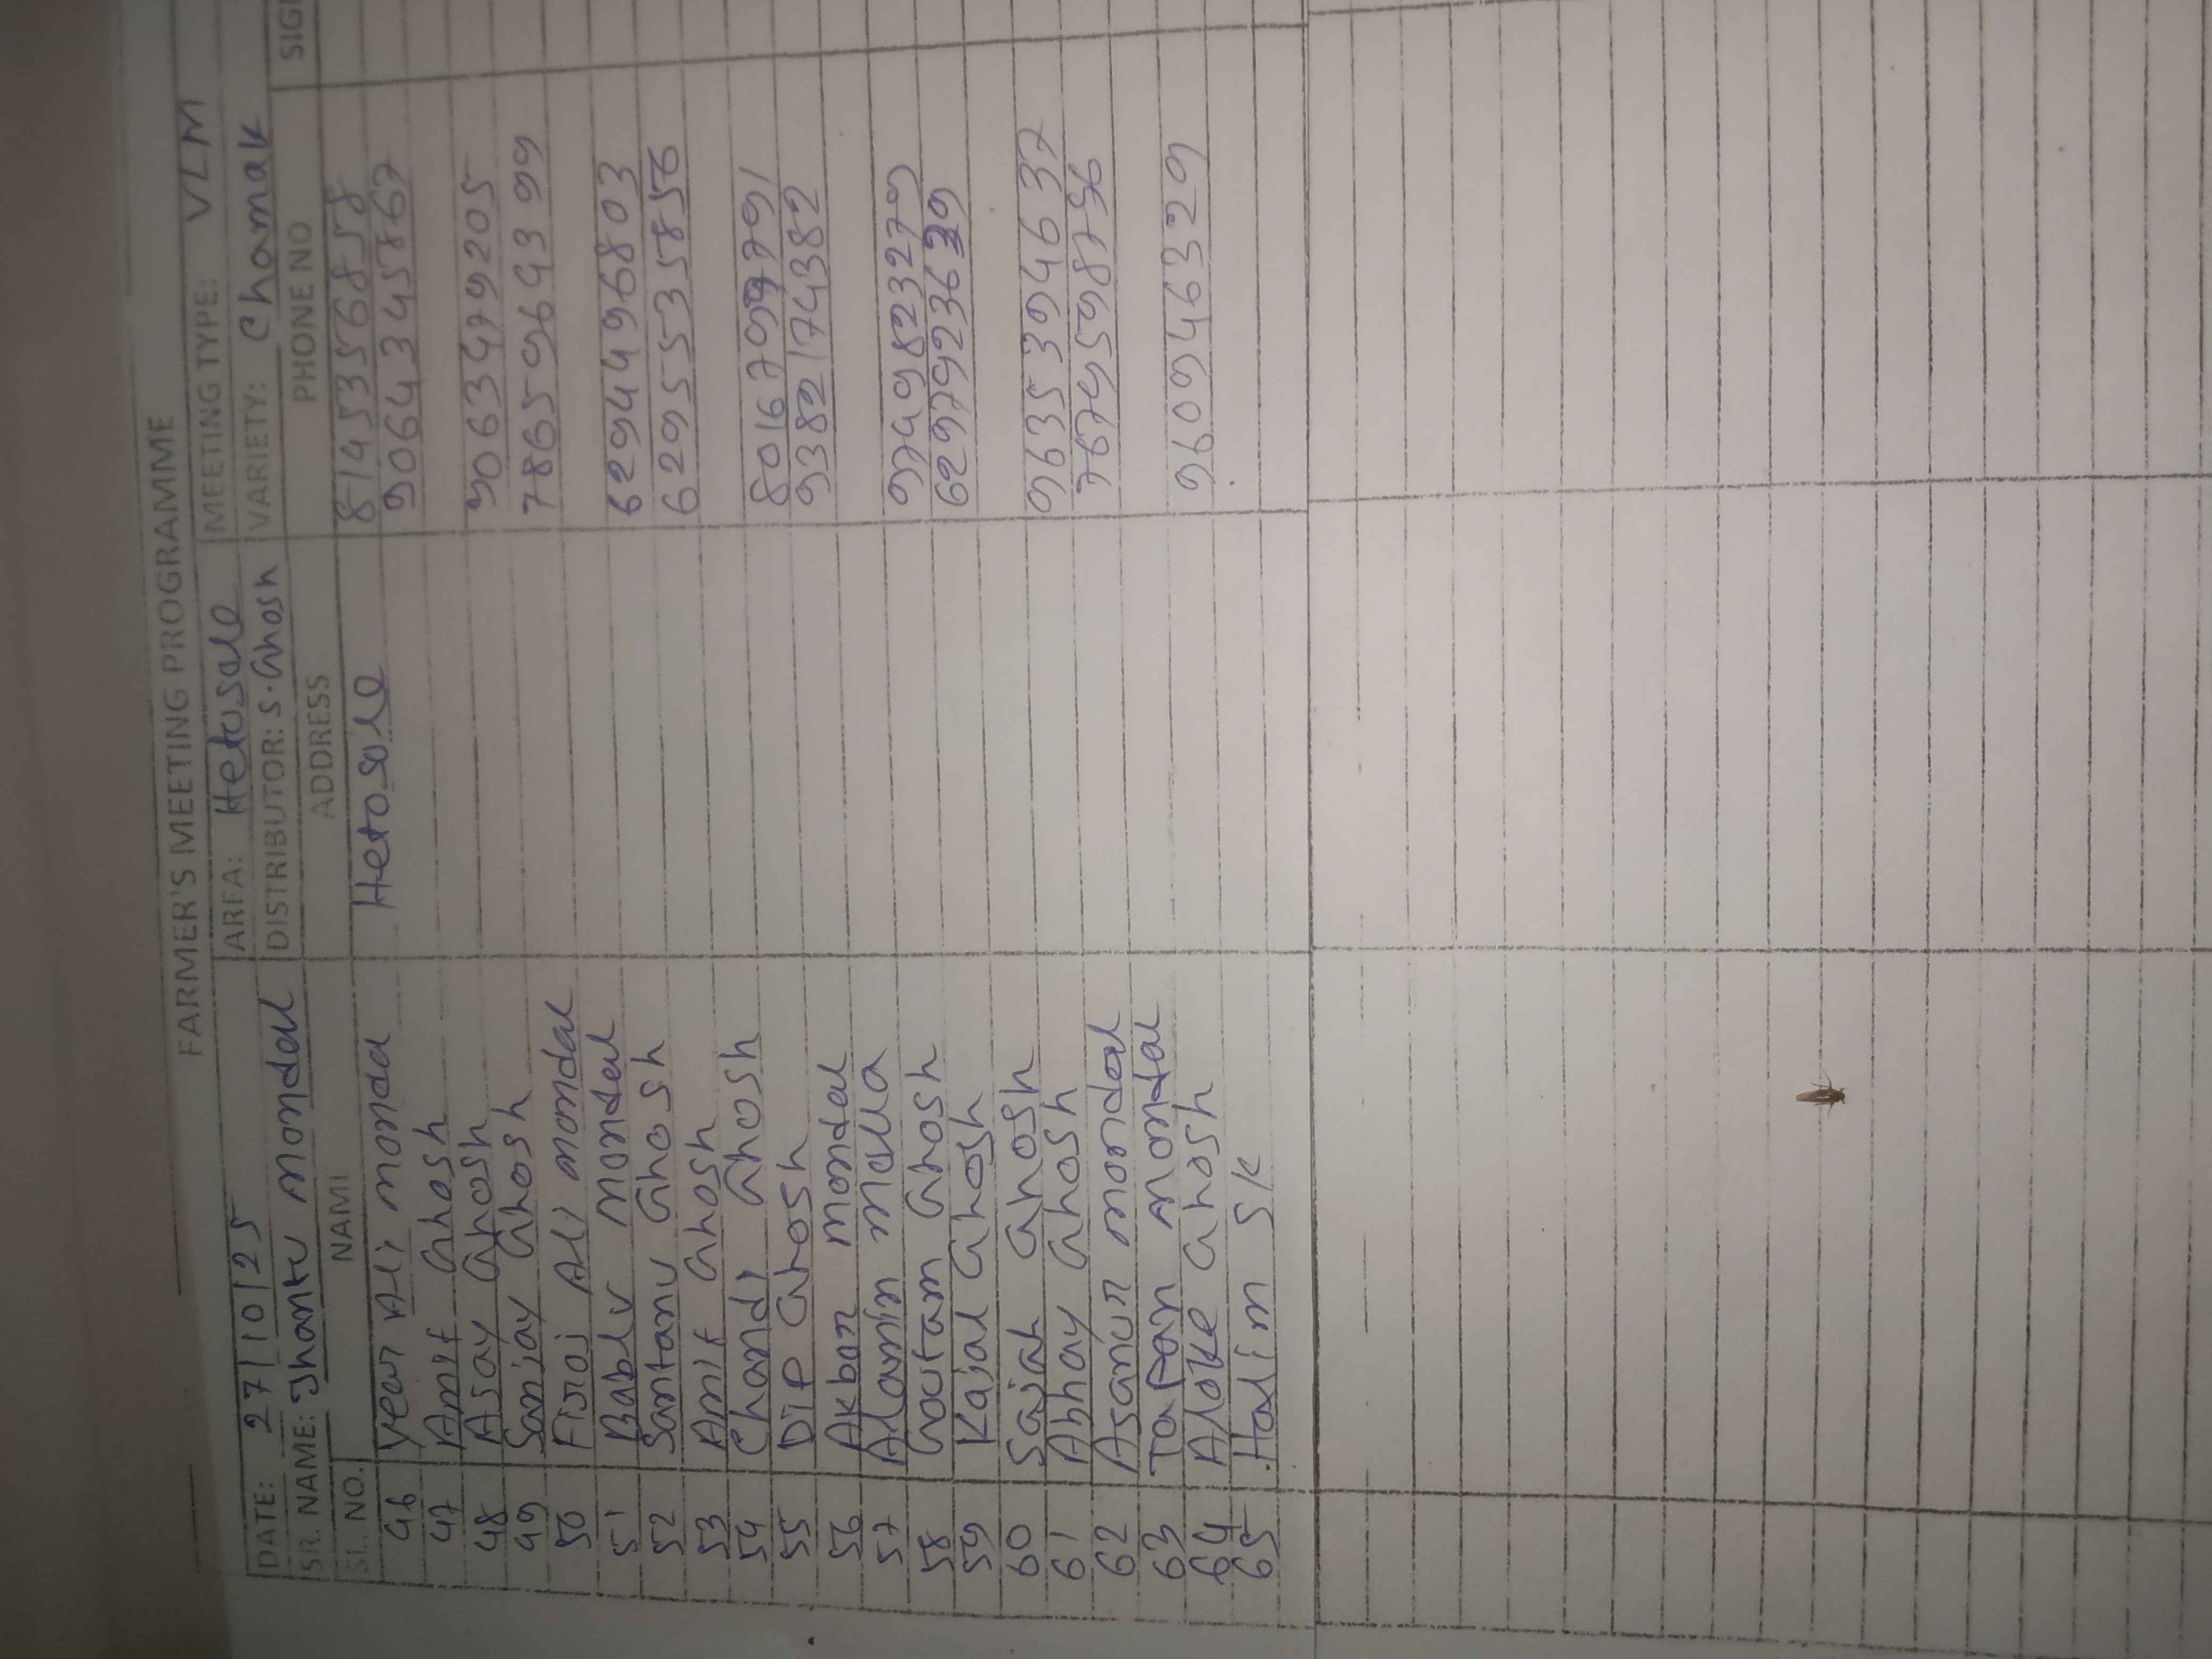 FARMER'S MEETING PROGRAMME
DATE: 27/10/25 AREA: Hetosale MEETING TYPE: VLM
SR. NAME: Jhantu mondal DISTRIBUTOR: S. Ghosh VARIETY: Chamak
SL. NO. NAME ADDRESS PHONE NO SIG
46 year Ali mondal Hetosale 8145356858
47 Amit Ghosh 9064345867
48 Asay Ghosh
49 Sanjay Ghosh 9063479205
50 Firoj Ali mondal 7865964399
51 Bablu mondal
52 Santanu Ghosh 6294496803
53 Amit Ghosh 6295535856
54 Chandi Ghosh
55 Dip Ghosh 8016799791
56 Akbar mondal 9382174382
57 Alamin molla
58 Goutam Ghosh 9749823279
59 Kajal Ghosh 6297923639
60 Sajak Ghosh
61 Abhay Ghosh 9635394637
62 Asanur mondal 7679598756
63 Tapan mondal
64 Aloke Ghosh 9609946329
65 Halim SK